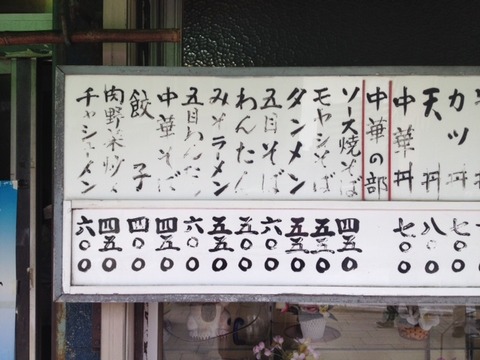 カツ丼
天丼
中華丼
中華の部
ソース焼そば
モヤシそば
タンメン
五目そば
わんたん
みそラーメン
五目わんたん
中華そば
餃子
肉野菜炒〆
チャシューメン
七〇〇
八〇〇
七〇〇
四五〇
五五〇
五五〇
六〇〇
五〇〇
五五〇
六〇〇
四五〇
四〇〇
四五〇
六〇〇